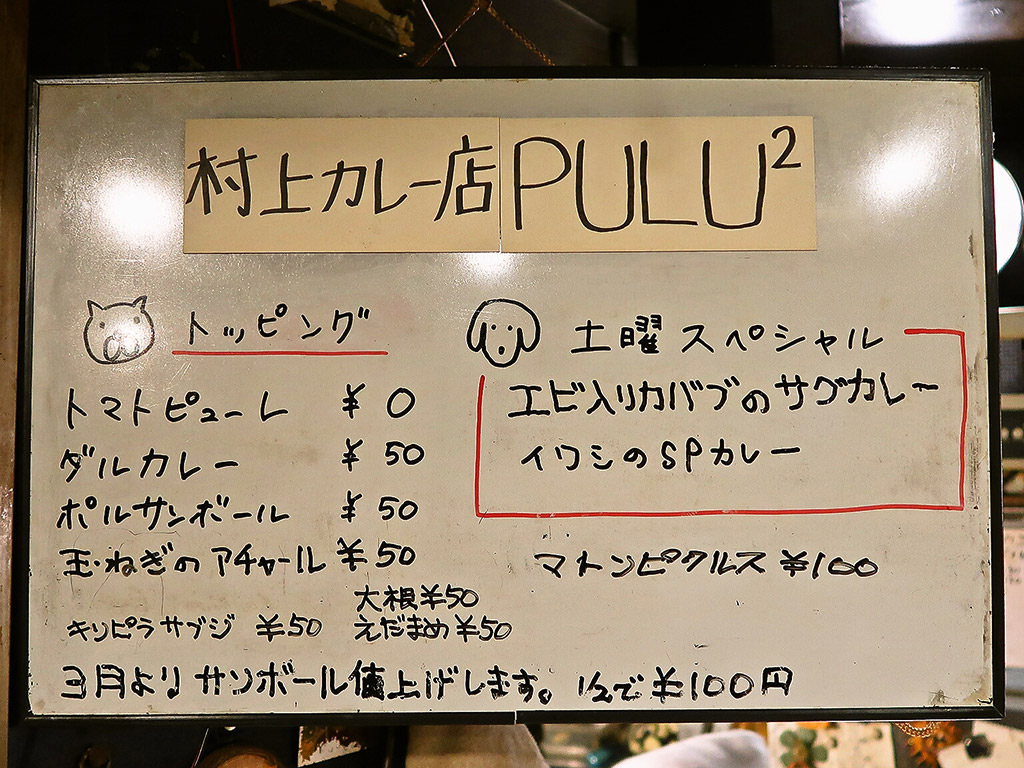 村上カレー店 PULU²
トッピング
トマトピューレ ¥0
ダルカレー ¥50
ポルサンボール ¥50
玉ねぎのアチャール ¥50
大根¥50
キンピラサブジ ¥50 えだまめ¥50
土曜スペシャル
エビ入りカバブのサグカレー
イワシのSPカレー
マトンピクルス ¥100
3月よりサンボール値上げします。1/2で¥100円